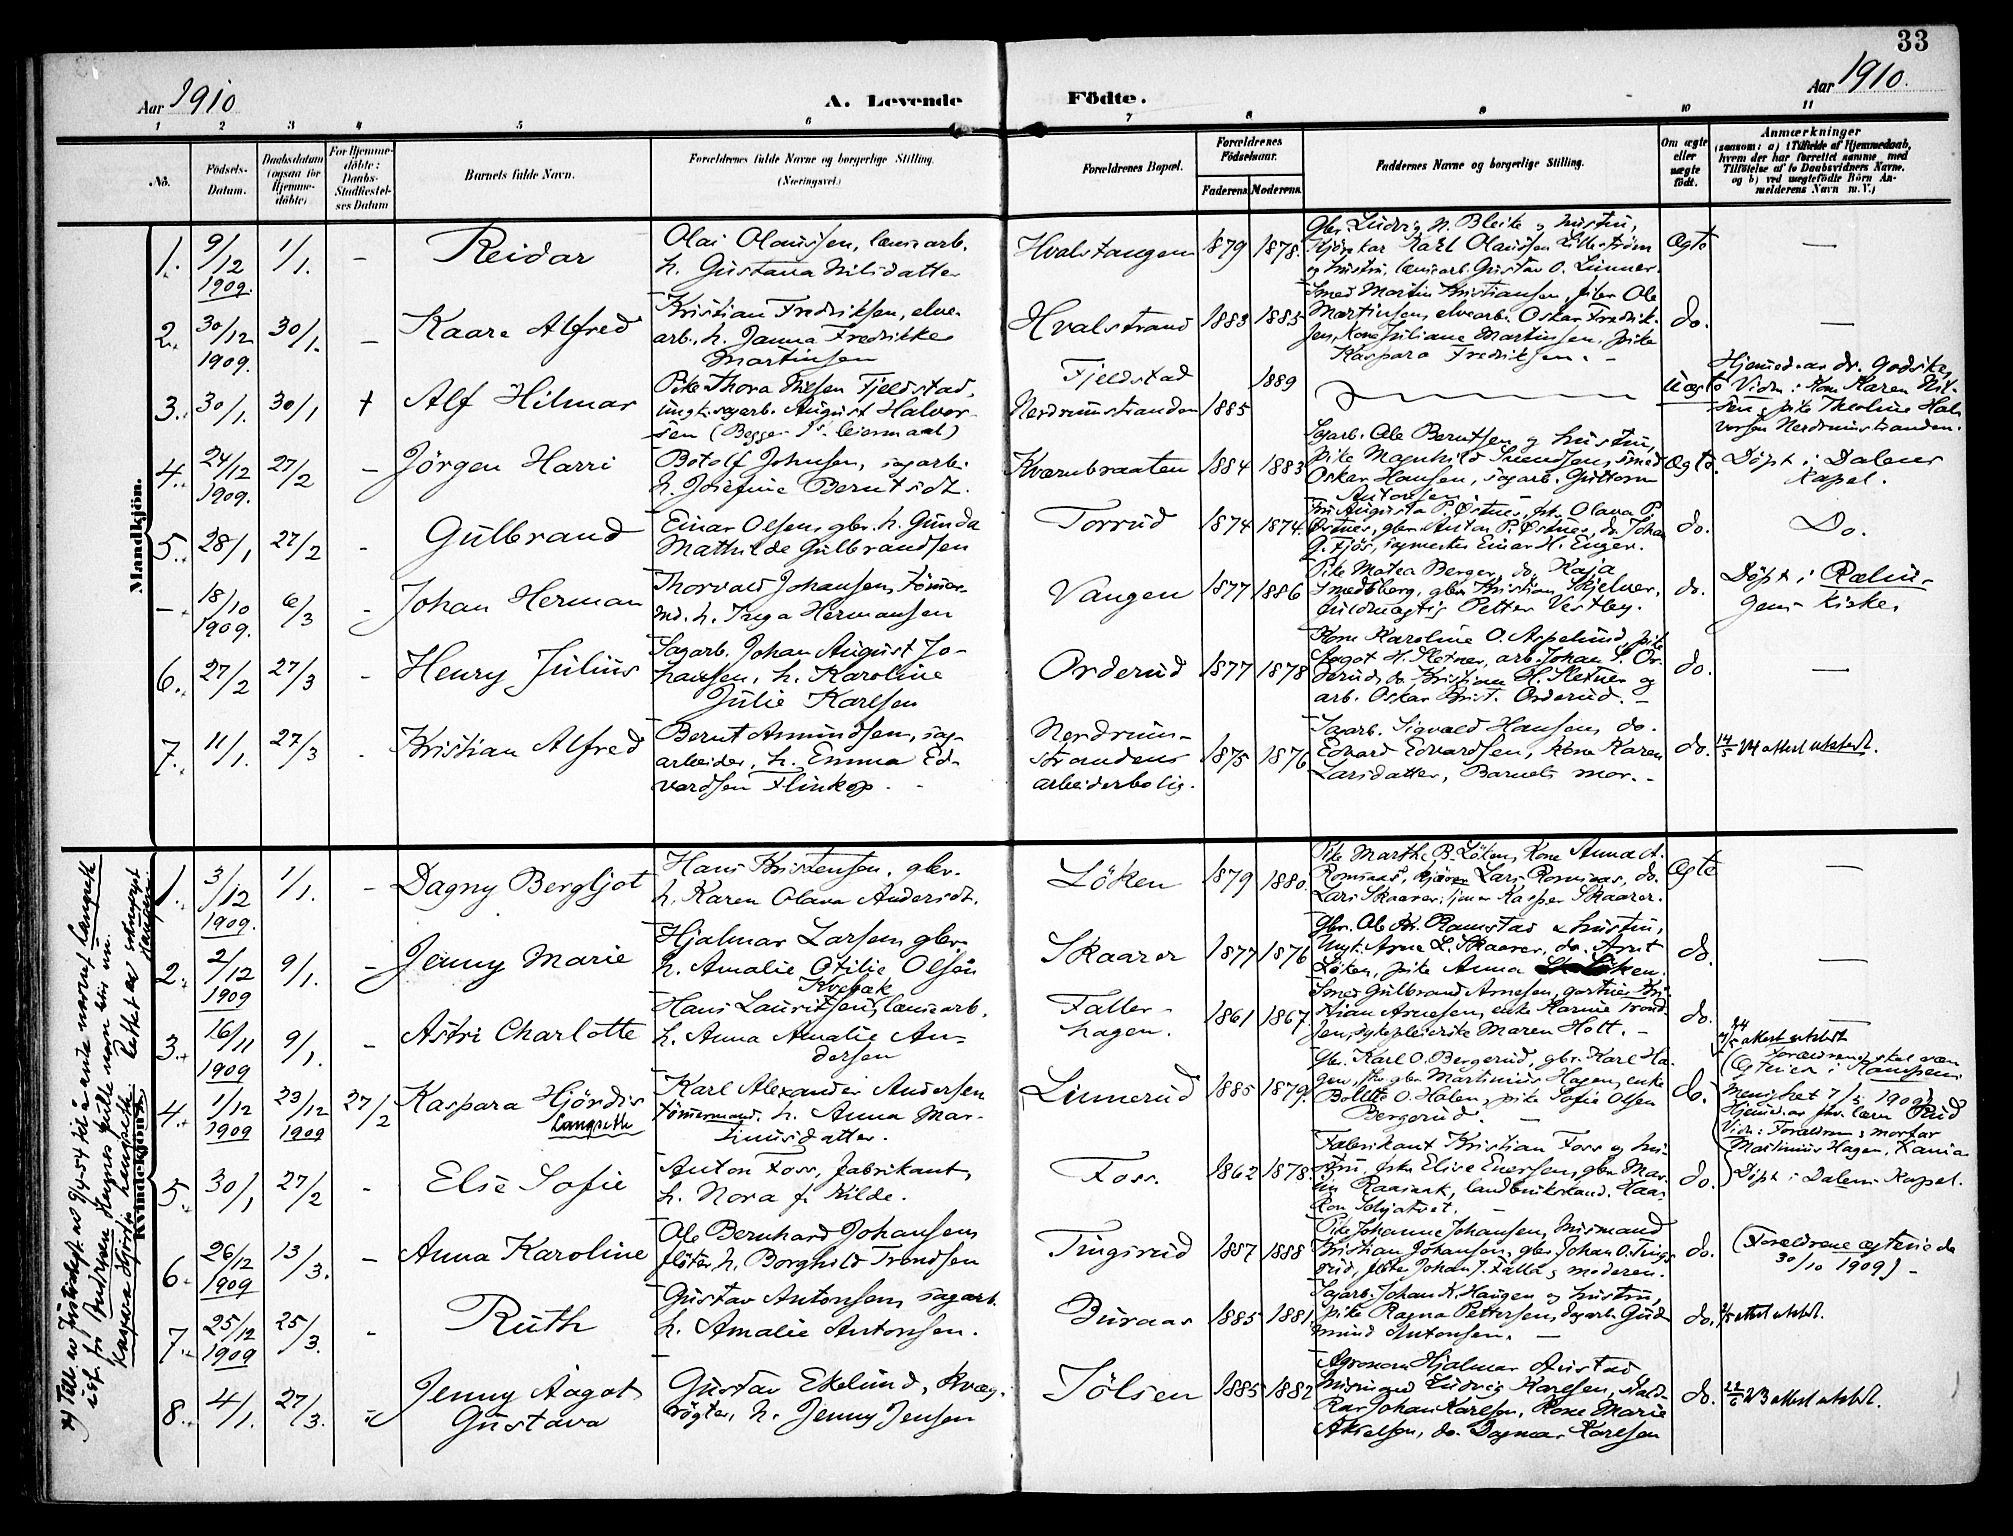 33
Aar 1910
A. Levende
Födte.
Aar 1910.
1 2 3 4 5 6 7 8 9 10 11
No.
Födsels-
Datum.
Daabsdatum
(ogsaa for
Hjemme-
döbte)
For Hjemme-
döbte:
Daabs-
Stadfæstel-
ses Datum
Barnets fulde Navn.
Forældrenes fulde Navne og borgerlige Stilling.
(Næringsvei.)
Forældrenes Bopæl.
Forældrenes
Födselsaar.
Faderens. Moderens.
Faddernes Navne og borgerlige Stilling.
Om ægte
eller
uægte
født.
Anmærkninger
(saasom: a) i Tilfælde af Hjemmedaab,
hvem der har forrettet samme, med
Tilföielse af to Daabsvidners Navne,
og b) ved uægtefödte Börn An-
melderens Navn m. V.)
Mandkjön.
1. 9/12 1909. 1/1. - Reidar
Olai Olaussen, læniarb.
h. Gustava Nilsdatter
Hvalstangen 1879 1878.
Gbr. Ludvig N. Bleike og hustru,
Karl Olaussen Lillestrøm
og hustru, læniarb. Gustav O. Linner.
Ægte —
2. 30/12 1909. 30/1. - Kaare Alfred
Kristian Fredriksen, elve-
arb., h. Janna Fredrikke
Martinsen
Hvalstrand 1883 1885
Smed Martin Kristiansen, Ole
Martinsen, elvearb. Oskar Fredrik-
sen, Kone Juliane Martinsen, pike
Kaspara Fredriksen. -
do. —
3. 30/1. 30/1 + Alf Hilmar
Pike Thora Nilsen Fjeldstad,
ungk. sagarb. August Halvor-
sen (Begges 1ste leiermaal)
Fjeldstad 1889
Nerdrumstranden 1885
Uægte
Hjemmed. av dr. Godske,
Vidn.: Kone Karen Nil-
sen, pike Theoline Hal-
vorsen Nerdrumstranden.
4. 24/12 1909. 27/2 - Jörgen Harri
Botolf Johnsen, sagarb.
h. Josefine Berntsdt.
Kværnbraaten 1884 1883
Sagarb. Ole Berntsen og hustru,
pike Magnhild Svendsen, smed
Oskar Hansen, sagarb. Guttorm
Antonsen. -
Ægte. Döpt i Dalens
Kapel.
5. 28/1 27/2 - Gulbrand
Einar Olsen, gbr. h. Gunda
Mathilde Gulbrandsen
Torrud 1874 1874.
Fru Augusta P. Østnes, frk. Olava P.
Østnes, gbr. Anton P. Østnes, do. Johan
G. Fjös, sagmester Einar H. Enger.
do. Do.
- 18/10 1909. 6/3 - Johan Herman
Thorvald Johansen, Tömmer-
md. h. Inga Hermansen
Vangen 1877 1886
Pike Matea Berger, do. Kaja
Smedsberg, gbr. Kristian Skjelver,
fuldmægtig Petter Vestby.
do. Döpt i Rælin-
gens Kirke.
6. 27/2 27/3 - Henry Julius
Sagarb. Johan August Jo-
hansen, h. Karoline
Julie Karlsen
Orderud 1877 1878
Kone Karoline O. Aspelund, pike
Aagot H. Sletner, arb. Johan S. Or-
derud, do. Kristian H. Sletner og
arb. Oskar Krist. Orderud. -
do. —
7. 11/1. 27/3 - Kristian Alfred
Bernt Amundsen, sag-
arbeider, h. Emma Ed-
vardsen Flinkop. -
Nerdrum-
strandens
arbeiderbolig. 1875 1876
Sagarb. Sigvald Hansen, do.
Edvard Edvardsen, Kone Karen
Larsdatter, Barnets mor. -
do. 14/5 24 attest utstedt.
Kvindekjön.
1. 3/12 1909. 1/1. - Dagny Bergljot
Hans Kristensen, gbr.
h. Karen Olava Andersdt.
Löken 1879 1880.
Pike Marthe B. Löken, Kone Anna A.
Romsaas, Lars Romsaas, do.
Lars Skaarer, Kasper Skaarer.
Ægte —
2. 2/12 1909 9/1. - Jenny Marie
Hjalmar Larsen, gbr.
h. Amalie Otilie Olsen
Skaarer 1877 1876
Gbr. Ole Kr. Ramstad & hustru,
Ungk. Arne L. Skaarer, do. Arnt
Löken, pike Anna Löken.
do. —
3. 16/11 1909 9/1. - Astri Charlotte
Kvebæk
Hans Lauritsen, læniarb.
h. Anna Amalie An-
dersen
Faller-
hagen. 1861 1867
Smed Gulbrand Arnesen, gartner Kri-
stian Arnesen, enke Karine Trond-
sen, sykepleierske Maren Holt. -
do. —
4. 1/12 1909 23/12 1909 27/2 Kaspara Hjördis
Langseth
Karl Alexander Andersen
tömmermand. h. Anna Mar-
tinusdatter.
Linnerud 1885 1879.
Gbr. Karl O. Bergerud, gbr. Karl Ha-
gen, gbr. Martinius Hagen, enke
Bolette O. Halen, pike Sofie Olsen
Bergerud. -
do.
attest utstedt
(Forældrene skal være
Egteviet i
menighet 7/5 1909)
Hjemmed. av Rud
Vidn.: Forældrene, morfar
Martinius Hagen,
5. 30/1 27/2 - Else Sofie
Anton Foss, fabrikant,
h. Nora f. Kilde.
Foss. 1862 1878.
Fabrikant Kristian Foss og hu-
stru, frk. Elise Evensen, gbr. Mar-
tin Raasnak, landbrukskand. Haa-
kon
do. Döpt i Dalens Kapel.
6. 26/12 1909 13/3. - Anna Karoline
Ole Bernhard Johansen,
flöter, h. Borghild Trondsen
Tingsrud 1887 1888
Pike Johanne Johansen, husmand
Kristian Johansen, gbr. Johan O. Tings-
rud, flöter Johan J. Falla & moderen.
do. (Forældrene egteviede
30/10 1909) -
7. 25/12 1909 25/3. - Ruth
Gustav Antonsen, sagarb.
h. Amalie Antonsen.
Buraas 1885 1881.
Sagarb. Johan K. Haugen og hustru,
pike Ragna Pettersen, sagarb. Gud-
mund Antonsen. -
do. attest utstedt.
8. 4/1. 27/3. - Jenny Aagot
Gustava
Gustav Ekelund, Kvæg-
røgter, h. Jenny Jensen
Tölsen 1885 1882
Agronom Hjalmar Austad
husmand Ludvig Karlsen, Stald-
kar Johan Karlsen, Kone Marie
Akselsen, do. Dagmar Karlsen
do. 22/6 23 attest utstedt.
x) Till. av Justisdept. av 9/4-54 til å anta navnet Langseth
ist. f. Andersen. Hennes fulle navn blir nu:
Kaspara Hjördis Langseth. Rettet av sokneprest
Haugen.